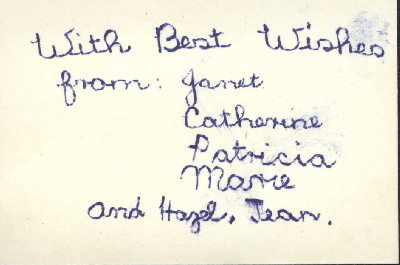 With Best Wishes
from: Janet
Catherine
Patricia
Marie
and Hazel, Jean.